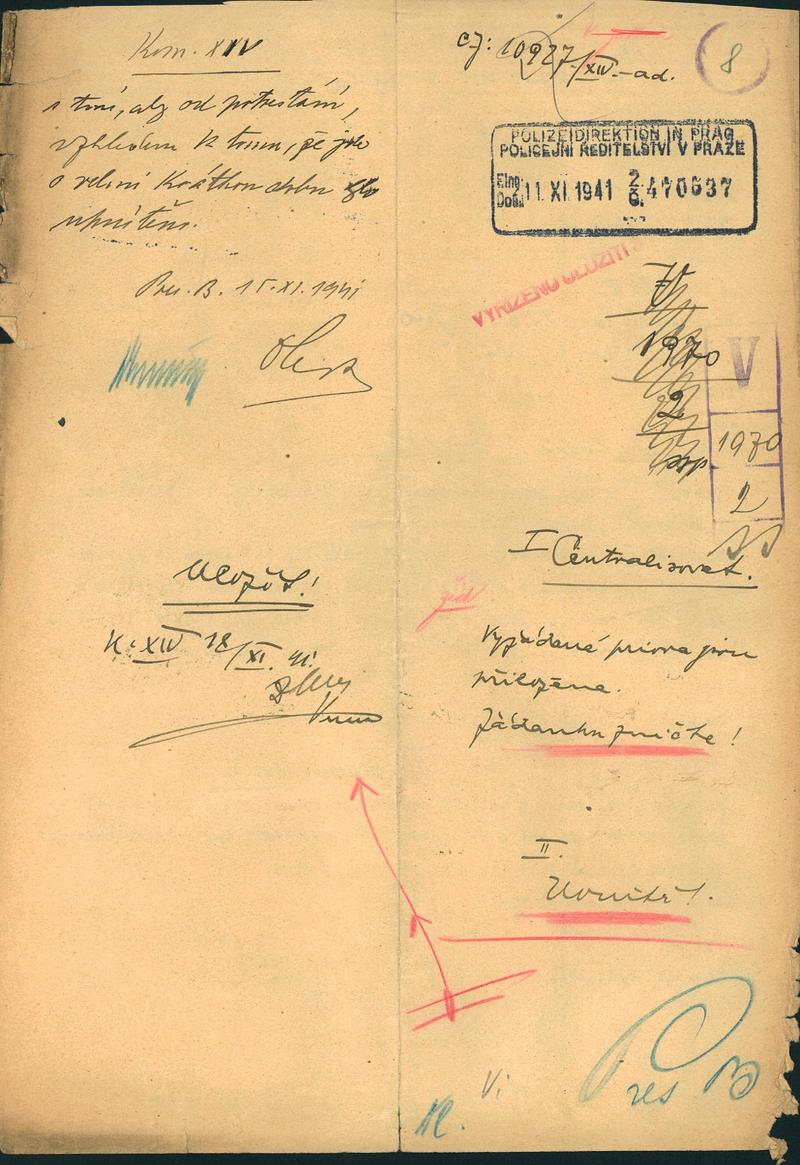 Kom. XIV
s tím, aby od potrestání,
vzhledem k tomu, že jde
o velmi krátkou dobu
upuštěno.
Pres. B. 15.XI.1941
Uložit!
K. XIV 18/XI. 41.
čj: 10927/XIV-ad.
8
POLIZEIDIREKTION IN PRAG
POLICEJNÍ ŘEDITELSTVÍ V PRAZE
Eing.
Došlo 11 XI 1941 2/6. 470637
VYŘÍZENO ULOŽITI
V
1970
2
V
1970
2
I Centralisovat.
žid
Vyžádané priora jsou
přiložena.
Žádanku zničte!
II.
Uvnitř!
Pres B
Vi